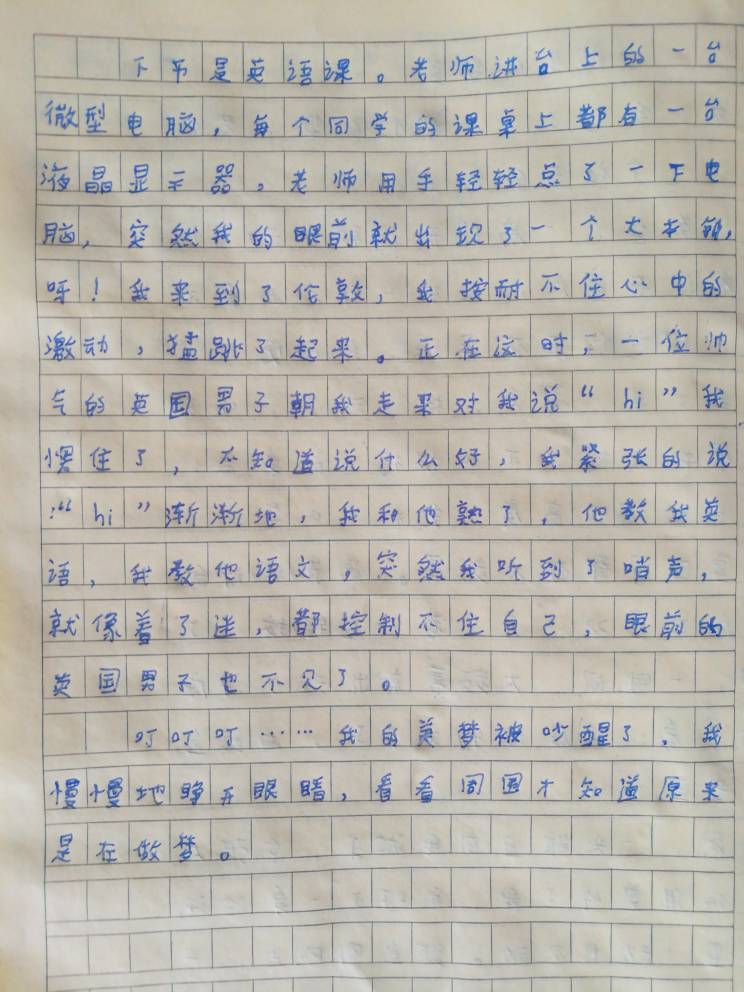 下节是英语课。老师讲台上的一台
微型电脑，每个同学的课桌上都有一台
液晶显示器，老师用手轻轻点了一下电
脑，突然我的眼前就出现了一个大本钟，
呀！我来到了伦敦，我按耐不住心中的
激动，猛跳了起来。正在这时，一位帅
气的英国男子朝我走来对我说“hi”我
愣住了，不知道说什么好，我紧张的说
：“hi”渐渐地，我和他熟了，他教我英
语，我教他语文，突然我听到了哨声，
就像着了迷，都控制不住自己，眼前的
英国男子也不见了。
叮叮叮……我的美梦被吵醒了，我
慢慢地睁开眼睛，看看周围才知道原来
是在做梦。